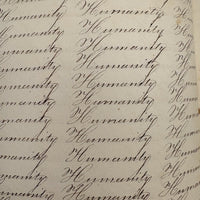 Humanity Humanity
Humanity Humanity
Humanity Humanity
Humanity Humanity
Humanity Humanity
Humanity Humanity
Humanity Humanity
Humanity Humanity
Humanity Humanity
Humanity Humanity